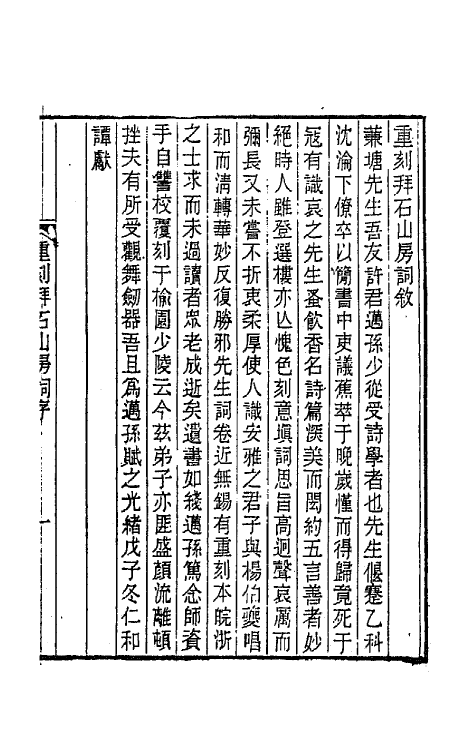 重刻拜石山房詞敘
蒹塘先生吾友許君邁孫少從受詩學者也先生偃蹇乙科
沈淪下僚卒以簡書中吏議蕉萃于晚歲僅而得歸竟死于
寇有識哀之先生蚤飲香名詩篇溁美而閎約五言善者妙
絕時人雖登選樓亦亾愧色刻意塡詞思旨高迥聲哀厲而
彌長又未嘗不折衷柔厚使人識安雅之君子與楊伯夔唱
和而淸轉華妙反復勝邪先生詞卷近無錫有重刻本皖浙
之士求而未過讀者眾老成逝矣遺書如綫邁孫篤念師資
手自讐校覆刻于榆園少陵云今茲弟子亦匪盛顏流離頓
挫夫有所受觀舞劒器吾且爲邁孫賦之光緒戊子冬仁和
譚獻
重刻拜石山房詞序
一